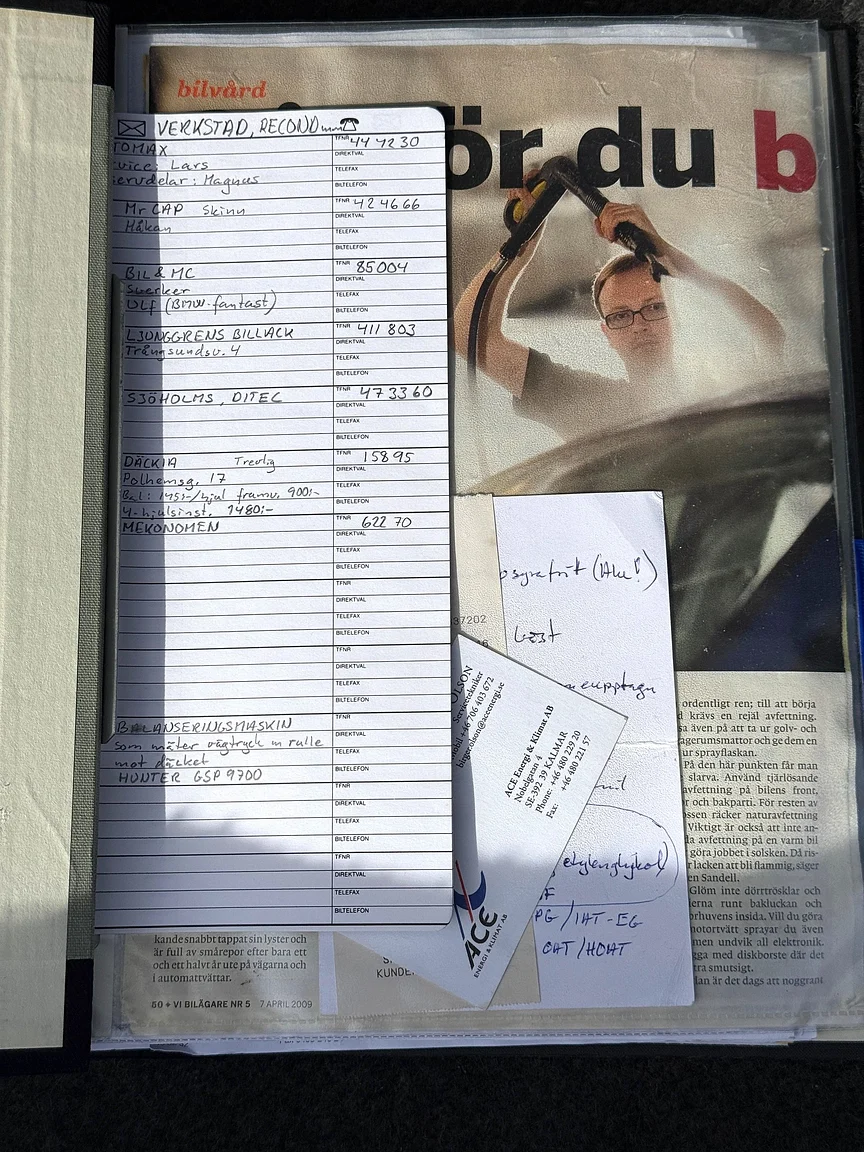 bilvård
ör du b
VERKSTAD, RECOND
TOMAX
TFNR 44 42 30
DIREKTVAL
vice: Lars
TELEFAX
ervdelar: Magnus
BILTELEFON
Mr CAP Skinn
TFNR 42 46 66
DIREKTVAL
Håkan
TELEFAX
BILTELEFON
BIL & MC
TFNR 85004
DIREKTVAL
Sverker
TELEFAX
Ulf (BMW-fantast)
BILTELEFON
LJUNGGRENS BILLACK
TFNR 411 803
DIREKTVAL
Trångsundsv. 4
TELEFAX
BILTELEFON
SJÖHOLMS, DITEC
TFNR 47 33 60
DIREKTVAL
TELEFAX
BILTELEFON
DÄCKIA Trevlig
TFNR 158 95
DIREKTVAL
Polhemsg. 17
TELEFAX
Bal: 145:-/hjul framv. 900:-
BILTELEFON
4-hjulsinst. 1480:-
MEKONOMEN
TFNR 622 70
DIREKTVAL
TELEFAX
BILTELEFON
TFNR
DIREKTVAL
TELEFAX
BILTELEFON
TFNR
DIREKTVAL
TELEFAX
BILTELEFON
BALANSERINGSMASKIN
TFNR
DIREKTVAL
som mäter vägtryck m rulle
TELEFAX
mot däcket
BILTELEFON
HUNTER GSP 9700
TFNR
DIREKTVAL
TELEFAX
BILTELEFON
TFNR
DIREKTVAL
TELEFAX
BILTELEFON
37202
OLSON
Servicetekniker
Mobil +46 706 403 672
birger.olson@aceenergi.se
ACE Energi & Klimat AB
Nobelgatan 4
SE-392 39 KALMAR
Phone: +46 480 229 20
Fax: +46 480 221 57
ACE
ENERGI & KLIMAT AB
etylenglykol)
PG/IAT-EG
OAT/HOAT
KUNDE
ordentligt ren; till att börja
krävs en rejäl avfettning.
sa även på att ta ur golv- och
agerumsmattor och ge dem en
ur sprayflaskan.
På den här punkten får man
slarva. Använd tjärlösande
avfettning på bilens front,
r och bakparti. För resten av
ssen räcker naturavfettning
Viktigt är också att inte an-
da avfettning på en varm bil
göra jobbet i solsken. Då ris-
r lacken att bli flammig, säger
en Sandell.
Glöm inte dörttrösklar och
erna runt bakluckan och
orhuvens insida. Vill du göra
motortvätt sprayar du även
men undvik all elektronik.
gga med diskborste där det
tra smutsigt.
lan är det dags att noggrant
kande snabbt tappat sin lyster och
är full av smårepor efter bara ett
och ett halvt år ute på vägarna och
i automattvättar.
60 + VI BILÄGARE NR 5 7 APRIL 2009